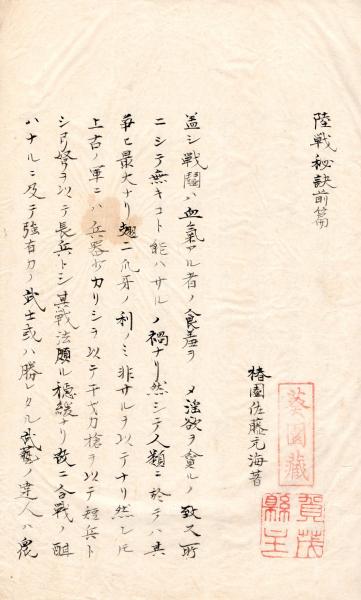 陸戦秘訣前篇
椿園佐藤元海著
葵園蔵
賀茂縣主
蓋シ戦闘ハ血氣アル者ノ食羞ヲメ淫欲ヲ貪ルノ致ス所
ニシテ無キコト能ハサルノ禍ナリ然シテ人類ニ於テハ其
最大ナリ爪牙ノ利ノミ非サルヲ以テナリ然レ𪜈
上古ノ軍ニハ兵器少カリシヲ以テ干戈刀槍ヲ以テ短兵ト
シ弓弩ヲ以テ長兵トシ其戦法頗ル穏緩ナリ故ニ合戦ノ酣
ハナルニ及テ強有力ノ武士或ハ勝レタル武藝ノ達人ハ衆